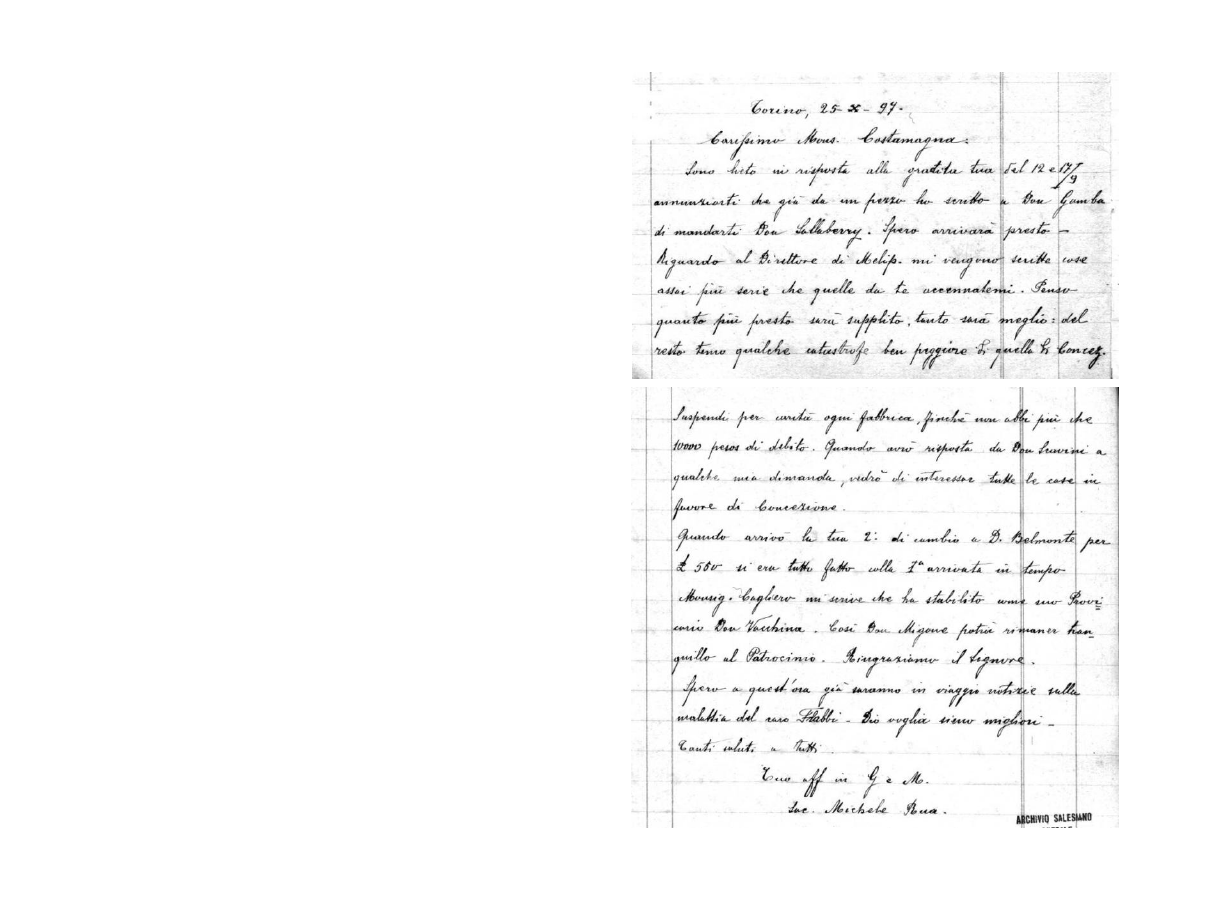 Torino, 25-X-97-
Carissimo Mons. Costamagna:
Sono lieto in risposta alla gratita tua del 12 e 17/9
annunziarti che già da un pezzo ho scritto a Don Gamba
di mandarti Don Sallaberry. Spero arrivarà presto -
Riguardo al Direttore di Melip. mi vengono scritte cose
assai più serie che quelle da te accennatemi. Penso
quanto più presto sarà supplito, tanto sarà meglio: del
resto temo qualche catastrofe ben peggiore di quella di Concez.
Suspendi per carità ogni fabbrica, finchè non abbi più che
10000 pesos di debito. Quando avrò risposta da Don Scavini a
qualche mia dimanda, vedrò di interessar tutte le case in
favore di Concezione.
Quando arrivò la tua 2ª di cambio a D. Belmonte per
£ 550 si era tutto fatto colla 1ª arrivata in tempo
Monsig. Cagliero mi scrive che ha stabilito come suo Provi=
cario Don Vacchina. Così Don Migone potrà rimaner tran=
quillo al Patrocinio. Ringraziamo il Signore.
Spero a quest'ora già saranno in viaggio notizie sulla
malattia del caro Flabbi - Dio voglia sieno migliori -
Tanti saluti a tutti
Tuo aff in G e M.
Sac. Michele Rua.
ARCHIVIO SALESIANO